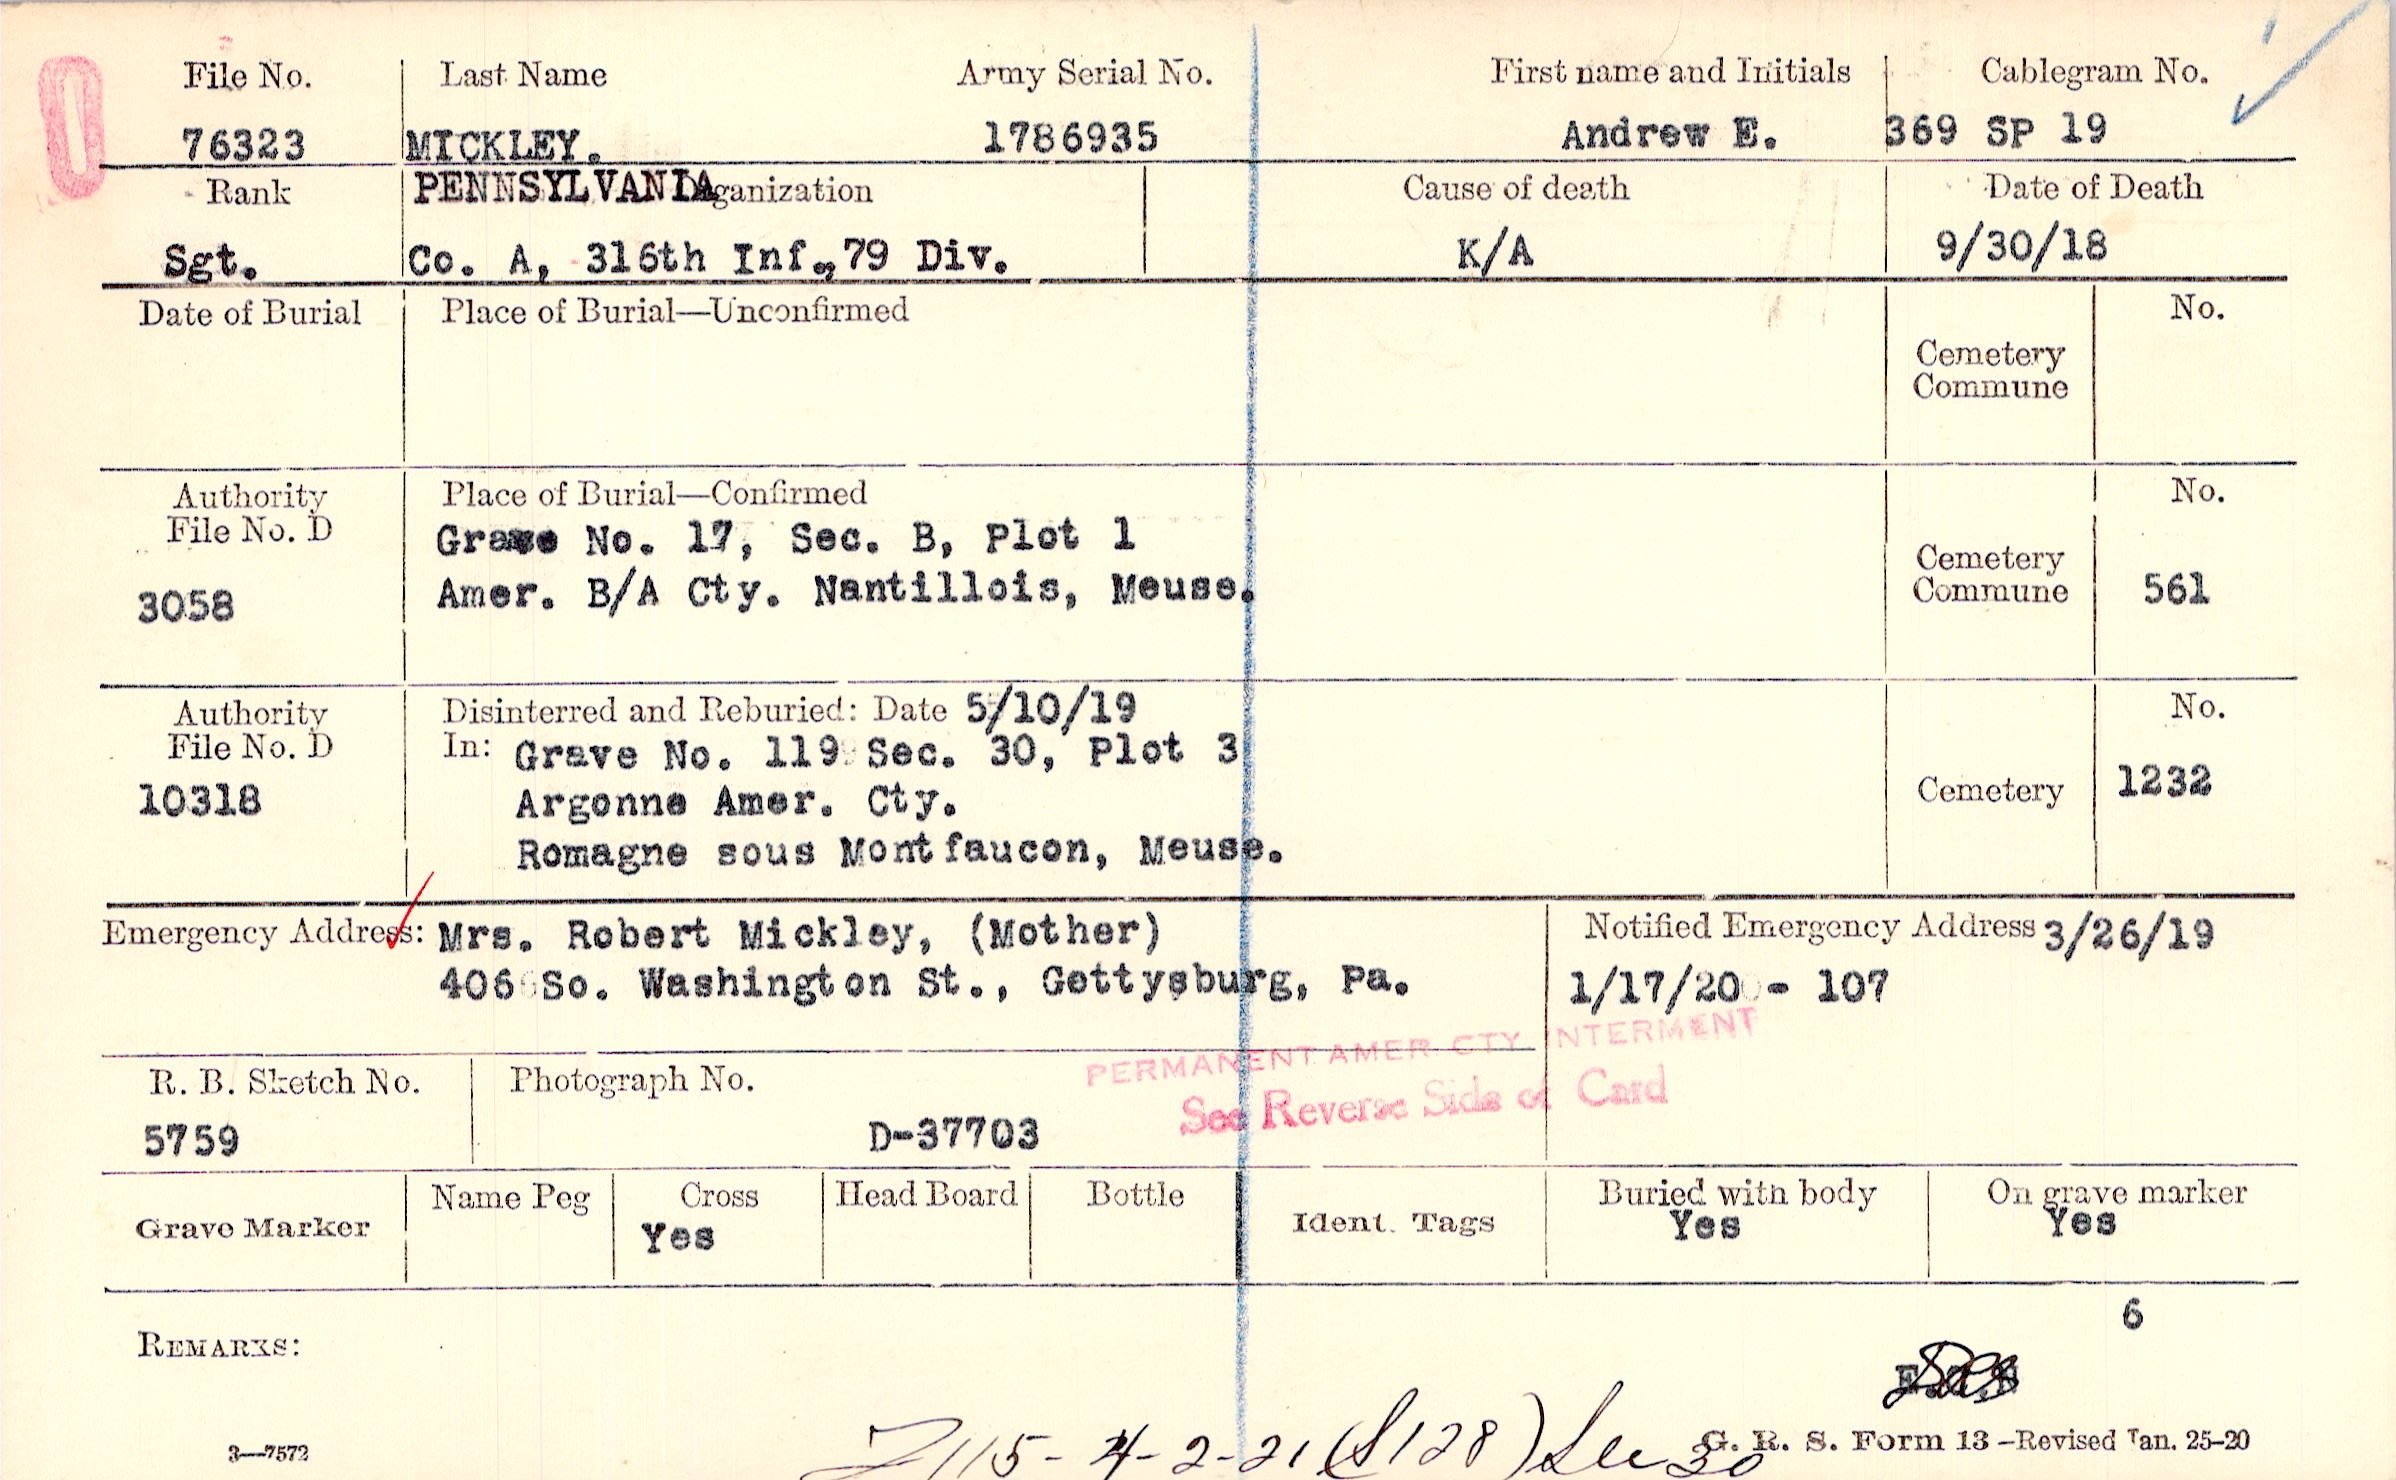 File No. Last Name Army Serial No. First name and Initials Cablegram No.
76323 MICKLEY. 1786935 Andrew E. 369 SP 19
Rank PENNSYLVANIA ganization Cause of death Date of Death
Sgt. Co. A, 316th Inf., 79 Div. K/A 9/30/18
Date of Burial Place of Burial—Unconfirmed No.
Cemetery
Commune
Authority Place of Burial—Confirmed No.
File No. D Grave No. 17, Sec. B, Plot 1
Cemetery
3058 Amer. B/A Cty. Nantillois, Meuse. Commune 561
Authority Disinterred and Reburied: Date 5/10/19 No.
File No. D In: Grave No. 119 Sec. 30, Plot 3
10318 Argonne Amer. Cty. Cemetery 1232
Romagne sous Montfaucon, Meuse.
Emergency Address: Mrs. Robert Mickley, (Mother) Notified Emergency Address 3/26/19
406 So. Washington St., Gettysburg, Pa. 1/17/20 - 107
PERMANENT AMER CTY INTERMENT
R. B. Sketch No. Photograph No. See Reverse Side of Card
5759 D-37703
Grave Marker Name Peg Cross Head Board Bottle Ident. Tags Buried with body On grave marker
Yes Yes Yes
6
REMARKS:
115-4-2-21 (S128) 30
3—7572 G. R. S. Form 13—Revised Jan. 25-20